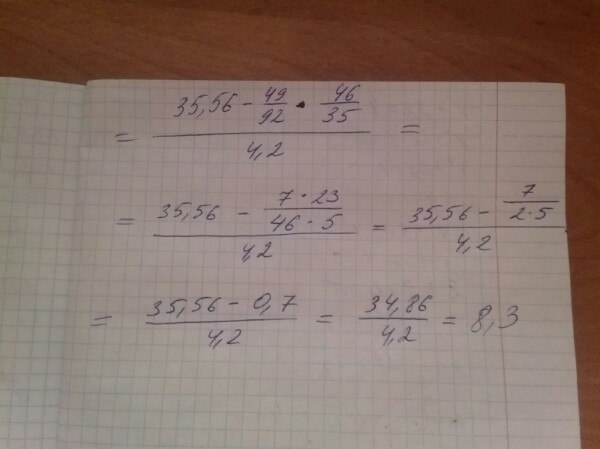 = (35,56 - 49/92 · 46/35) / 4,2 =
= (35,56 - (7 · 23)/(46 · 5)) / 4,2 = (35,56 - 7/(2·5)) / 4,2
= (35,56 - 0,7) / 4,2 = 34,86 / 4,2 = 8,3